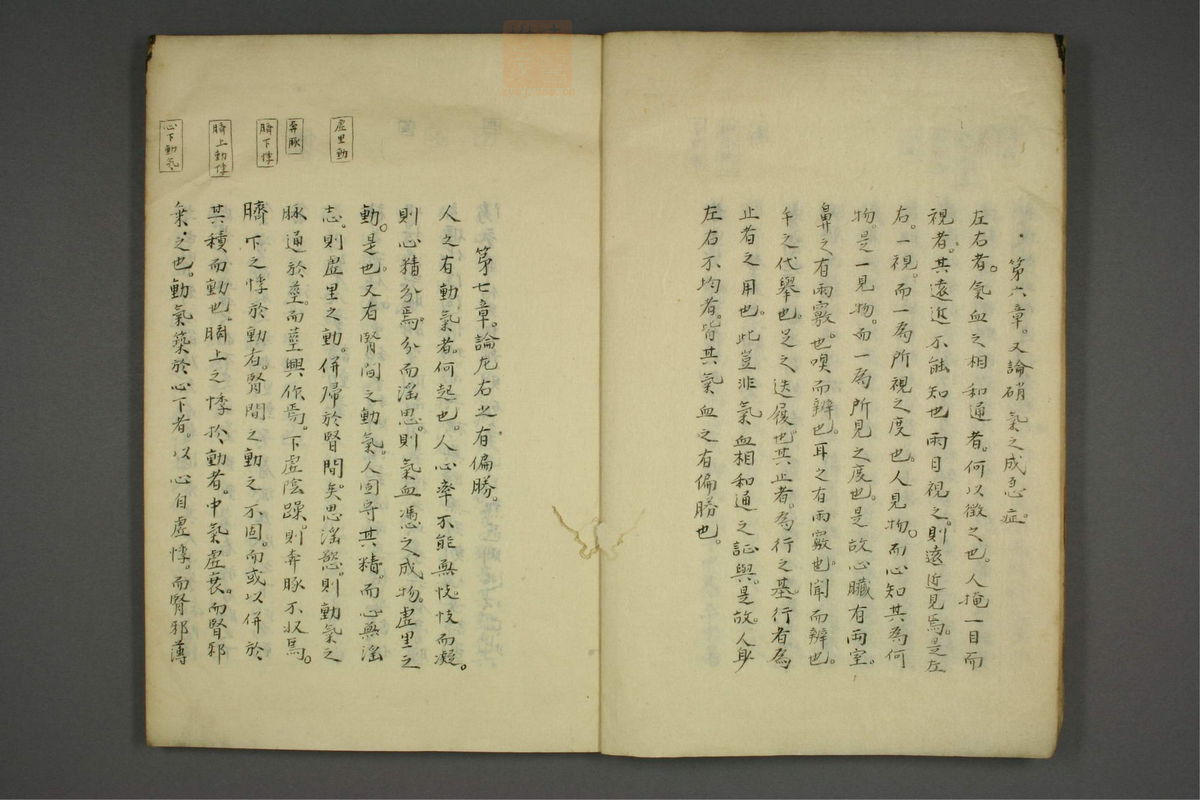 第六章。又論硝氣之成急症。
左右者。氣血之相和通者。何以徴之也。人掩一目而
視者。其遠近不能知也。兩目視之。則遠近見焉。是左
右。一視。而一為所視之度也。人見物。而心知其為何
物。是一見物。而一為所見之度也。是故心臟有兩室。
鼻之有兩竅。也嗅而辨也。耳之有兩竅也。聞而辨也。
手之代舉也。足之迭履也。其止者。為行之基。行者為
止者之用也。此豈非氣血相和通之証與。是故。人身
左右不均者。皆其氣血之有偏勝也。
第七章。論左右之有偏勝。
人之有動氣者。何起也。人心率不能無忮。忮而凝。
則心精分焉。分而滛思。則氣血憑之成物。虛里之
動。是也。又有腎間之動氣。人固守其精。而心無滛
志。則虛里之動。併歸於腎間矣。思滛慾。則動氣之
脉通於莖。而莖興作焉。下虛陰躁。則奔豚不收焉。
臍下之悸於動者。腎間之動之不固。而或以併於
其積而動也。臍上之悸於動者。中氣虛衰。而腎邪
乗之也。動氣築於心下者。以心自虛悸。而腎邪薄
虛里動
奔豚
臍下悸
臍上動悸
心下動氣